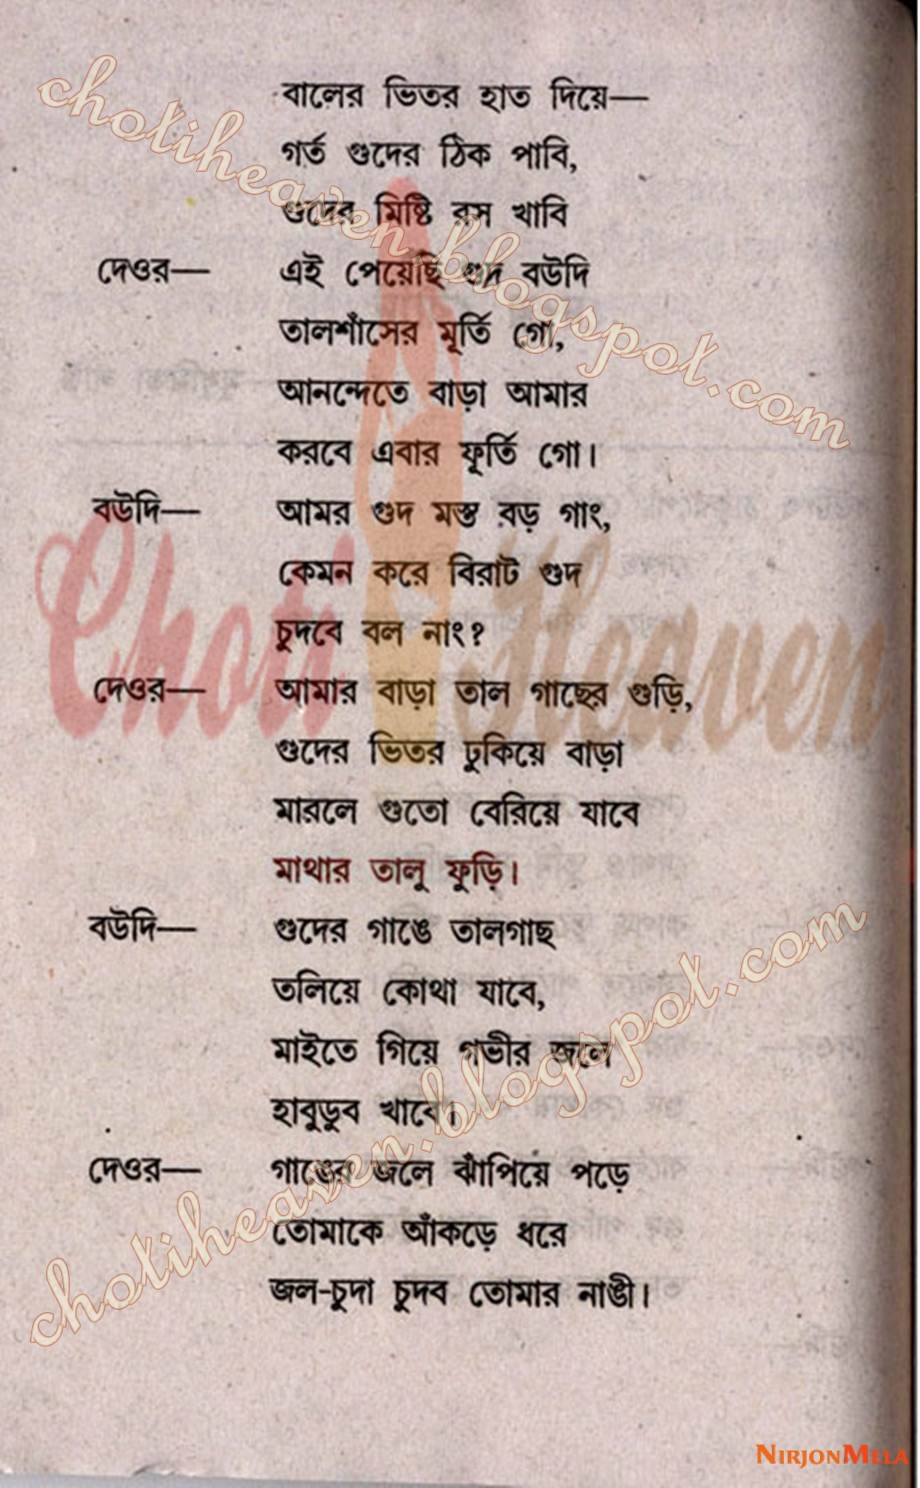 বালের ভিতর হাত দিয়ে—
গর্ত গুদের ঠিক পাবি,
গুদের মিষ্টি রস খাবি
দেওর— এই পেয়েছি গুদ বউদি
তালশাঁসের মূর্তি গো,
আনন্দেতে বাড়া আমার
করবে এবার ফূর্তি গো।
বউদি— আমর গুদ মস্ত বড় গাং,
কেমন করে বিরাট গুদ
চুদবে বল নাং?
দেওর— আমার বাড়া তাল গাছের গুড়ি,
গুদের ভিতর ঢুকিয়ে বাড়া
মারলে গুতো বেরিয়ে যাবে
মাথার তালু ফুড়ি।
বউদি— গুদের গাঙে তালগাছ
তলিয়ে কোথা যাবে,
মাইতে গিয়ে গভীর জলে
হাবুডুব খাবে।
দেওর— গাঙের জলে ঝাঁপিয়ে পড়ে
তোমাকে আঁকড়ে ধরে
জল-চুদা চুদব তোমার নাঙী।
chotiheaven.blogspot.com
Choti Heaven
chotiheaven.blogspot.com
NIRJONMELA